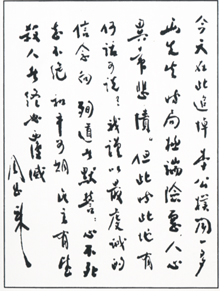 今天在此追悼李公樸闻一多
两先生时局极端险恶人心
异常悲愤但此时此地有
何话可说我谨以最虔诚的
信念向殉道者默誓心不死
志不绝和平可期民主有望
杀人者终必覆灭
周恩来